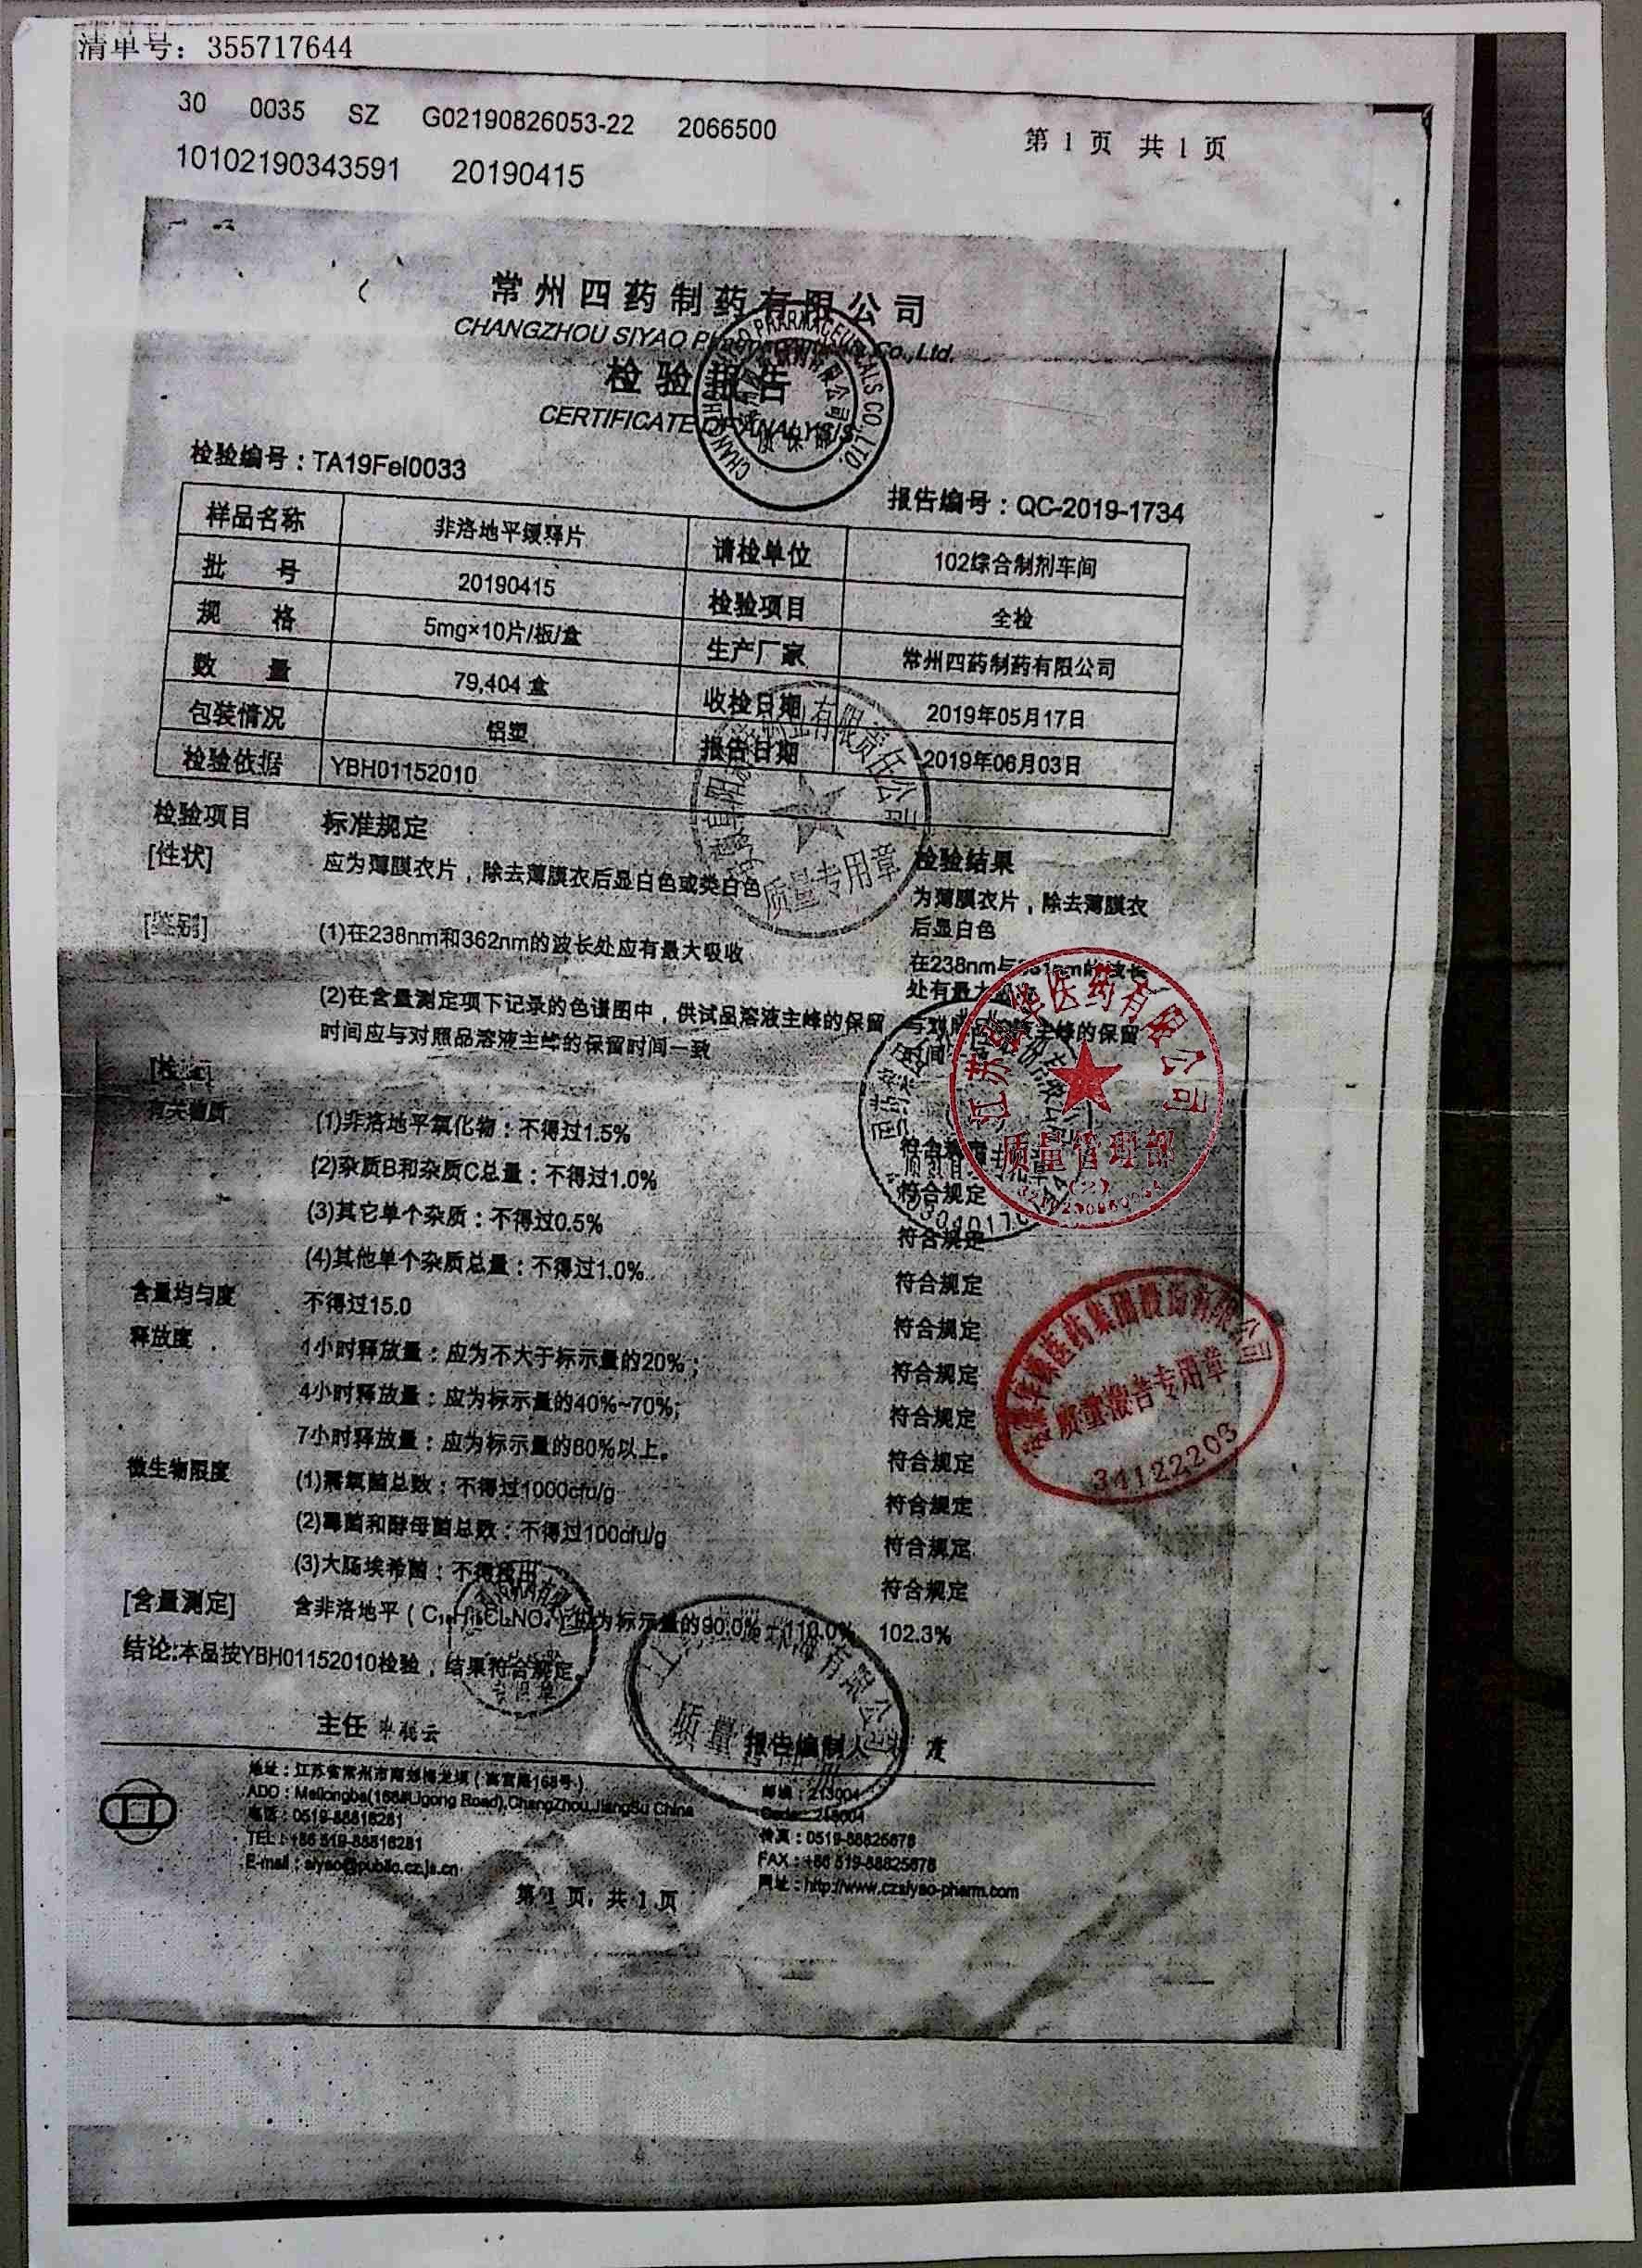 清单号：355717644
30 0035 SZ G02190826053-22 2066500
第 1 页 共 1 页
10102190343591 20190415
常州四药制药有限公司
CHANGZHOU SIYAO Pharmaceuticals Co.,Ltd.
检验报告
CERTIFICATE OF ANALYSIS
检验编号：TA19Fel0033
报告编号：QC-2019-1734
样品名称 非洛地平缓释片 请检单位 102综合制剂车间
批 号 20190415 检验项目 全检
规 格 5mg×10片/板/盒 生产厂家 常州四药制药有限公司
数 量 79,404 盒 收检日期 2019年05月17日
包装情况 铝塑 报告日期 2019年06月03日
检验依据 YBH01152010
检验项目 标准规定 检验结果
[性状] 应为薄膜衣片，除去薄膜衣后显白色或类白色 为薄膜衣片，除去薄膜衣
后显白色
[鉴别] (1)在238nm和362nm的波长处应有最大吸收 在238nm与361nm的波长
处有最大吸收
(2)在含量测定项下记录的色谱图中，供试品溶液主峰的保留 与对照品溶液主峰的保留
时间应与对照品溶液主峰的保留时间一致 时间
[检查]
有关物质 (1)非洛地平氧化物：不得过1.5% 符合规定
(2)杂质B和杂质C总量：不得过1.0% 符合规定
(3)其它单个杂质：不得过0.5% 符合规定
(4)其他单个杂质总量：不得过1.0% 符合规定
含量均匀度 不得过15.0 符合规定
释放度 1小时释放量：应为不大于标示量的20%； 符合规定
4小时释放量：应为标示量的40%~70%; 符合规定
7小时释放量：应为标示量的80%以上。 符合规定
微生物限度 (1)需氧菌总数：不得过1000cfu/g 符合规定
(2)霉菌和酵母菌总数：不得过100cfu/g 符合规定
(3)大肠埃希菌：不得检出 符合规定
[含量测定] 含非洛地平（C₁₈H₁₉Cl₂NO₄）应为标示量的90.0%~110.0% 102.3%
结论:本品按YBH01152010检验，结果符合规定。
主任 报告编制人
地址：江苏省常州市 邮编：213004
ADD：Meilongba(168#Ligong Road),ChangZhou,JiangSu China Code：213004
电话：0519-88816281 传真：0519-88825678
TEL：+86 519-88816281 FAX：+86 519-88825678
E-mail：siyao@public.cz.js.cn 网址：http://www.czsiyao-pharm.com
第 1 页，共 1 页
质量专用章
医药有限公司
质量管理部
(2)
医药集团股份有限公司
质量报告专用章
34122203